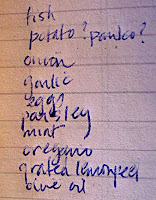 fish
potato? panko?
onion
garlic
egg?
parsley
mint
oregano
grated lemon peel
olive oil